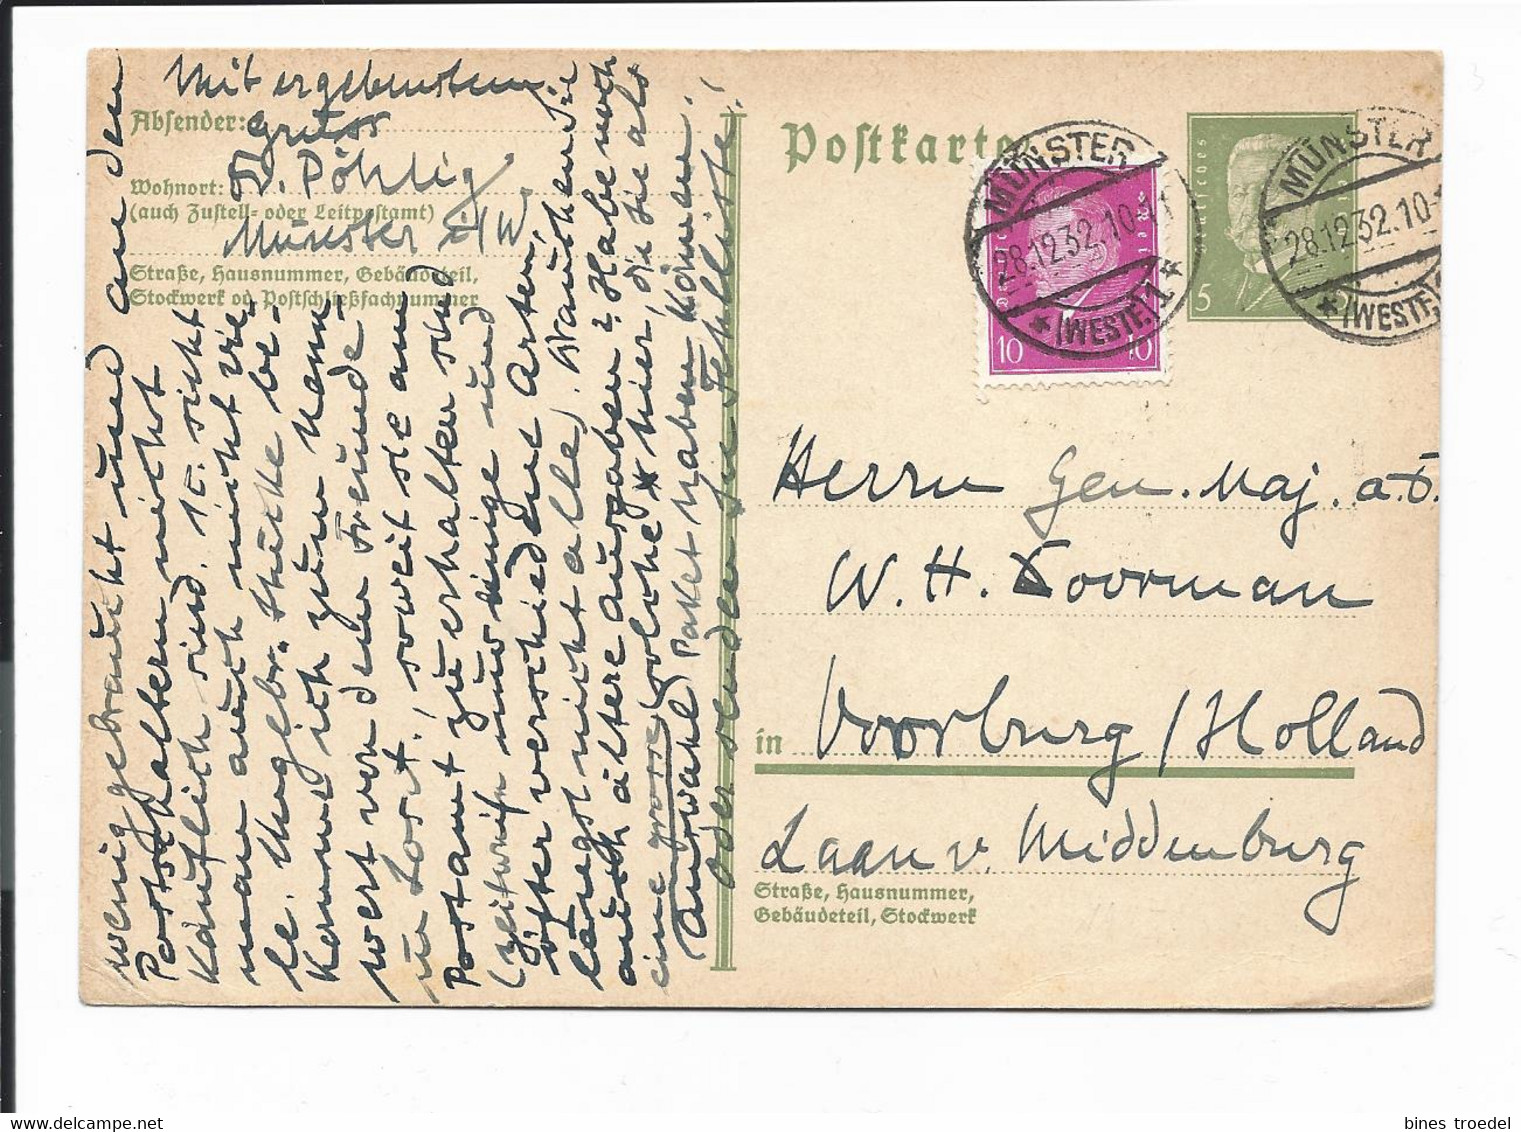 Mit ergebenstem
Gruss
D. Pöhlig
Münster i/W
Absender:
Wohnort:
(auch Zustell- oder Leitpostamt)
Straße, Hausnummer, Gebäudeteil,
Stockwerk od. Postschließfachnummer
wenig gebraucht und an den
Postschaltern nicht
Käuflich sind. Ic sieht
man auch nicht vie-
le. Ungebr. Stücke be-
Komme ich zum Nenn-
wert von dem Freunde
in Lorst, soweit sie am
Postamt zu erhalten sind
(zeitweise nur einige und
öfter verschiedene Arten,
längst nicht alle). Brauchen Sie
auch ältere Ausgaben? Habe noch
eine grosse solche hier, die sie als
Auswahl Paket haben können.
oder senden sie Fehlliste!
Postkarte
MÜNSTER
28.12.32.10-11
(WESTF.) 1
10 10
MÜNSTER
28.12.32.10-
(WESTF.)
5
Herrn Gen. Maj. a.D.
W. H. Doorman
in Voorburg / Holland
Laan v. Middenburg
Straße, Hausnummer,
Gebäudeteil, Stockwerk
bines troedel